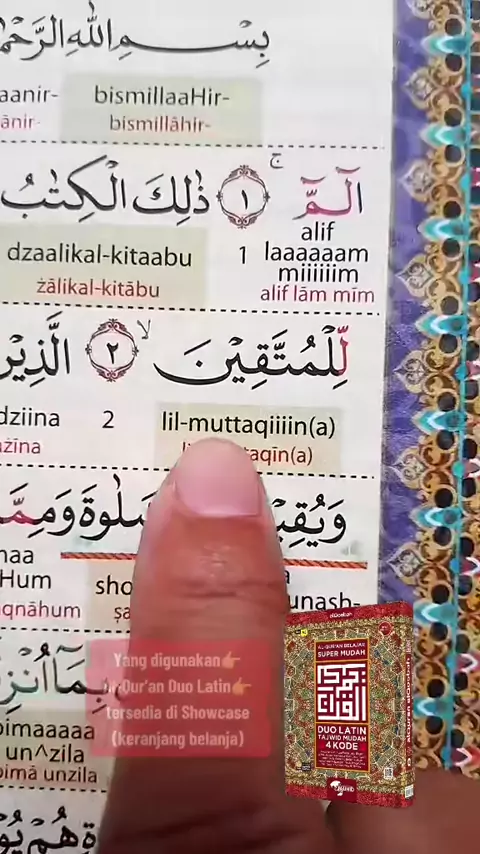 بِسْمِ اللهِ الرَّحْمٰ
aanir- bismillaaHir-
ānir- bismillâhir-
الٓمّٓ ۚ ١ ذٰلِكَ الْكِتٰبُ
alif
dzaalikal-kitaabu 1 laaaaaam
miiiiiim
żālikal-kitābu alif lām mīm
لِّلْمُتَّقِيْنَ ۙ ٢ الَّذِيْن
dziina 2 lil-muttaqiiiin(a)
żīna
lil-muttaqīn(a)
وَيُقِيْ
صَّلٰوةَ وَمِمَّا
naa
Hum sho
unash-
qnāhum
بِمَآ اُنْزِ
bimaaaaa
un^zila
bimā unzila
ةِ هُمْ يُو
Yang digunakan👉
Al-Qur'an Duo Latin👉
tersedia di Showcase
(keranjang belanja)
alQosbah
AL-QUR'AN BELAJAR
SUPER MUDAH
DUO LATIN
TAJWID MUDAH
4 KODE